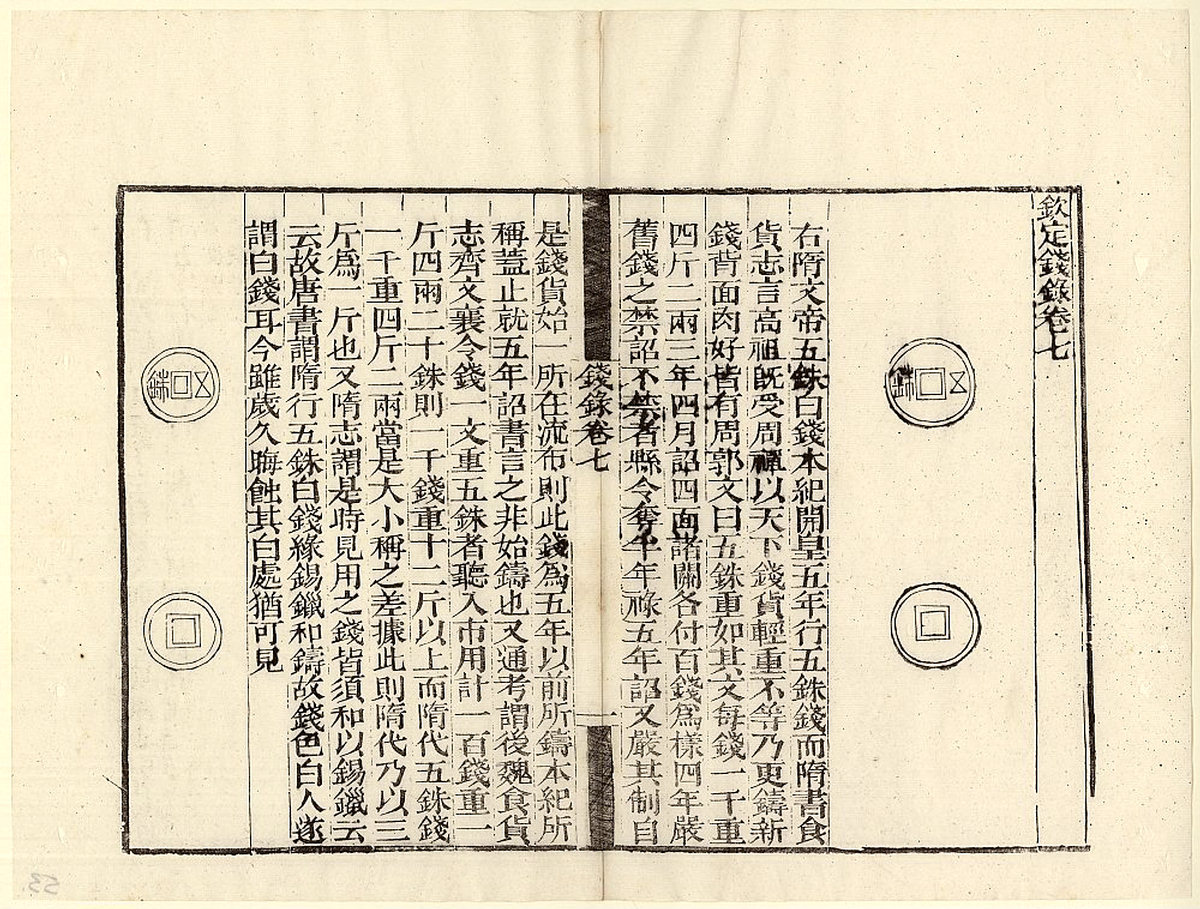 欽定錢錄卷七
五銖
右隋文帝五銖白錢本紀開皇五年行五銖錢而隋書食
貨志言高祖旣受周禪以天下錢貨輕重不等乃更鑄新
錢背面肉好皆有周郭文曰五銖重如其文每錢一千重
四斤二兩三年四月詔四面諸關各付百錢爲樣四年嚴
舊錢之禁詔不禁者縣令奪半年祿五年詔又嚴其制自
錢錄卷七
一
是錢貨始一所在流布則此錢爲五年以前所鑄本紀所
稱蓋止就五年詔書言之非始鑄也又通考謂後魏食貨
志齊文襄令錢一文重五銖者聽入市用計一百錢重一
斤四兩二十銖則一千錢重十二斤以上而隋代五銖錢
一千重四斤二兩當是大小稱之差據此則隋代乃以三
斤爲一斤也又隋志謂是時見用之錢皆須和以錫鑞云
云故唐書謂隋行五銖白錢緣錫鑞和鑄故錢色白人遂
謂白錢耳今雖歲久晦蝕其白處猶可見
五銖
53.